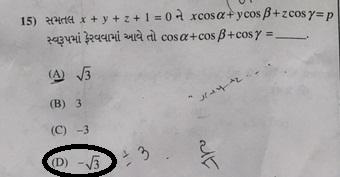 15) સમતલ x + y + z + 1 = 0 ને xcosα+ycosβ+zcosγ=p
સ્વરૂપમાં ફેરવવામાં આવે તો cosα+cosβ+cosγ = _____.
(A) √3
(B) 3
(C) -3
(D) -√3 ÷ 3